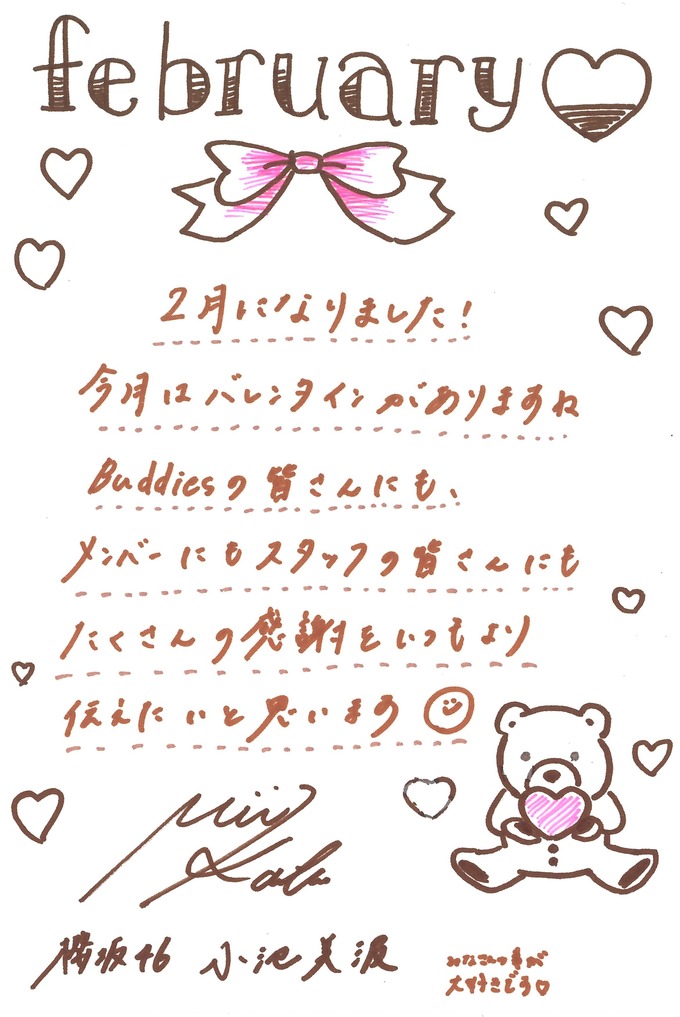 february
2月になりました!
今月はバレンタインがありますね
Buddiesの皆さんにも、
メンバーにもスタッフの皆さんにも
たくさんの感謝をいつもより
伝えたいと思います
櫻坂46 小池美波
みなさんの事が
大好きどす♡